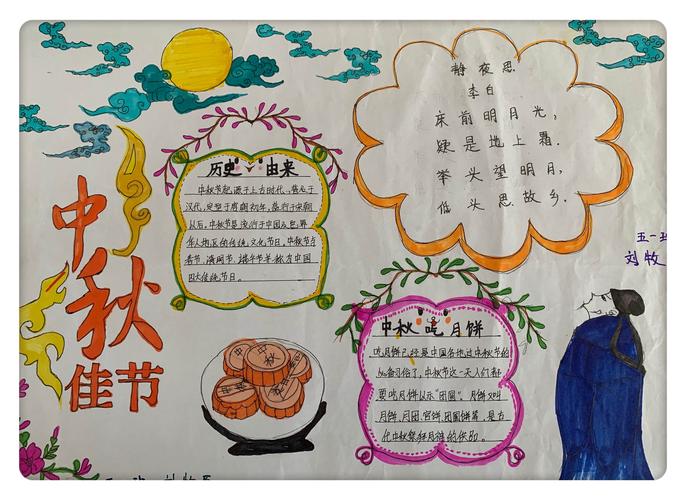 中秋
佳节
静夜思
李白
床前明月光，
疑是地上霜.
举头望明月，
低头思故乡.
五一班
刘牧
历史 由来
中秋节起源于上古时代，普及于
汉代，定型于唐朝初年，盛行于宋朝
以后。中秋节是流行于中国
人地区的传统文化节日。中秋节与
春节、清明节、端午节并称为中国
四大传统节日。
中秋吃月饼
吃月饼已经是中国各地过中秋节的
必备习俗了，中秋节这一天人们都
要吃月饼以示"团圆"。月饼又叫
月饼、月团、宫饼、团圆饼等，是古
代中秋祭拜月神的供品。
中秋
刘牧